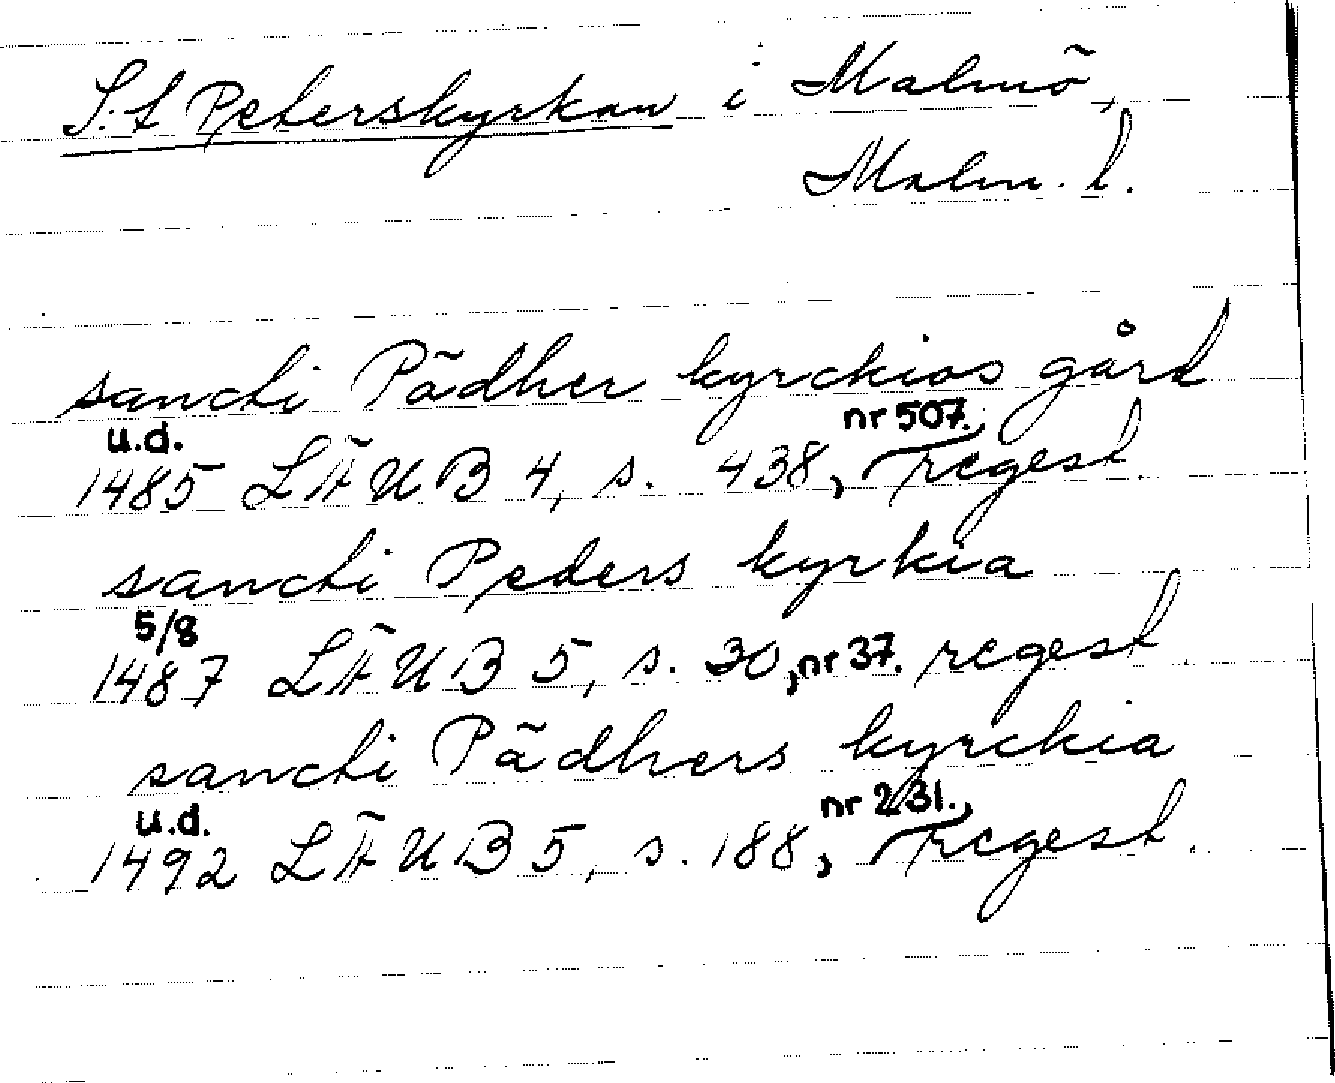 S:t Peterskyrkan i Malmö,
Malm. l.
sancti Pädher kyrckios gård
u.d. nr 507.
1485 LÄUB 4, s. 438, regest.
sancti Peders kyrkia
5/8
1487 LÄUB 5, s. 30, nr 37. regest.
sancti Pädhers kyrckia
u.d. nr 231.
1492 LÄUB 5, s. 188, regest.